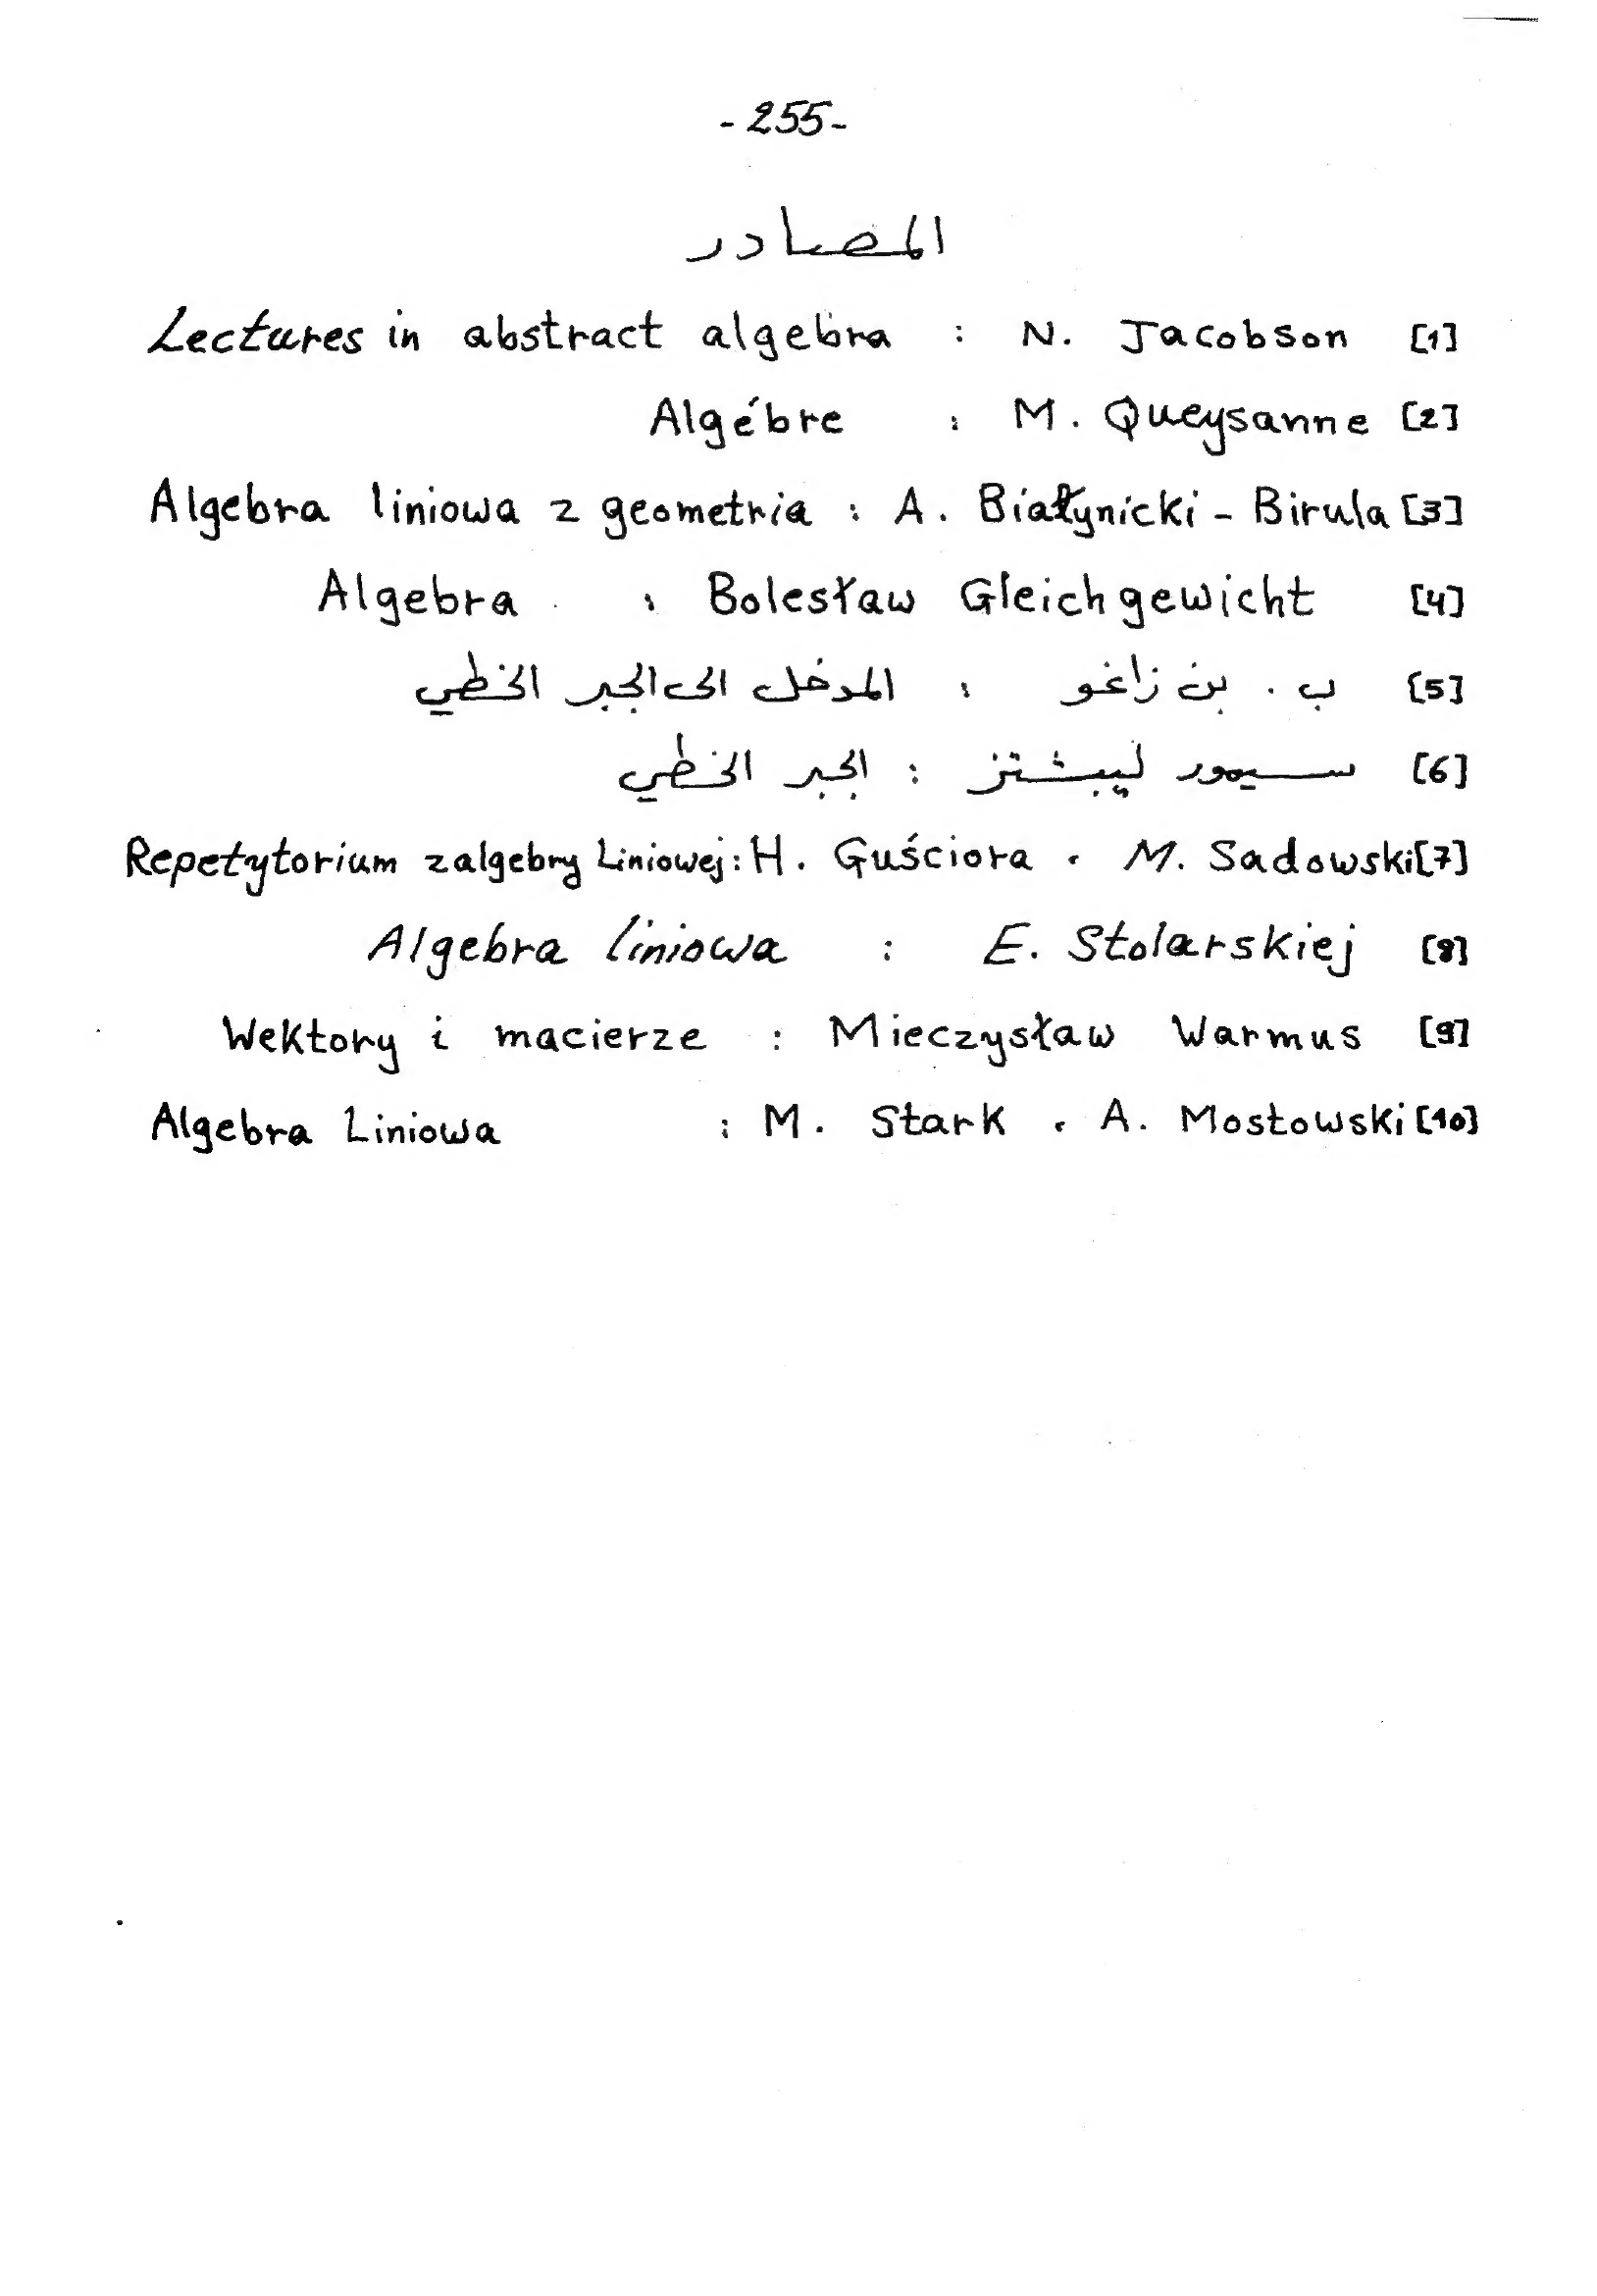 - 255 -
المصادر
Lectures in abstract algebra : N. Jacobson [1]
Algébre : M. Queysanne [2]
Algebra liniowa z geometria : A. Białynicki - Birula [3]
Algebra : Bolesław Gleichgewicht [4]
[5] ب. بن زاغو : المدخل الى الجبر الخطي
[6] سيمور ليبشتز : الجبر الخطي
Repetytorium z algebry Liniowej : H. Guściora , M. Sadowski [7]
Algebra liniowa : E. Stolarskiej [8]
Wektory i macierze : Mieczysław Warmus [9]
Algebra Liniowa : M. Stark , A. Mostowski [10]